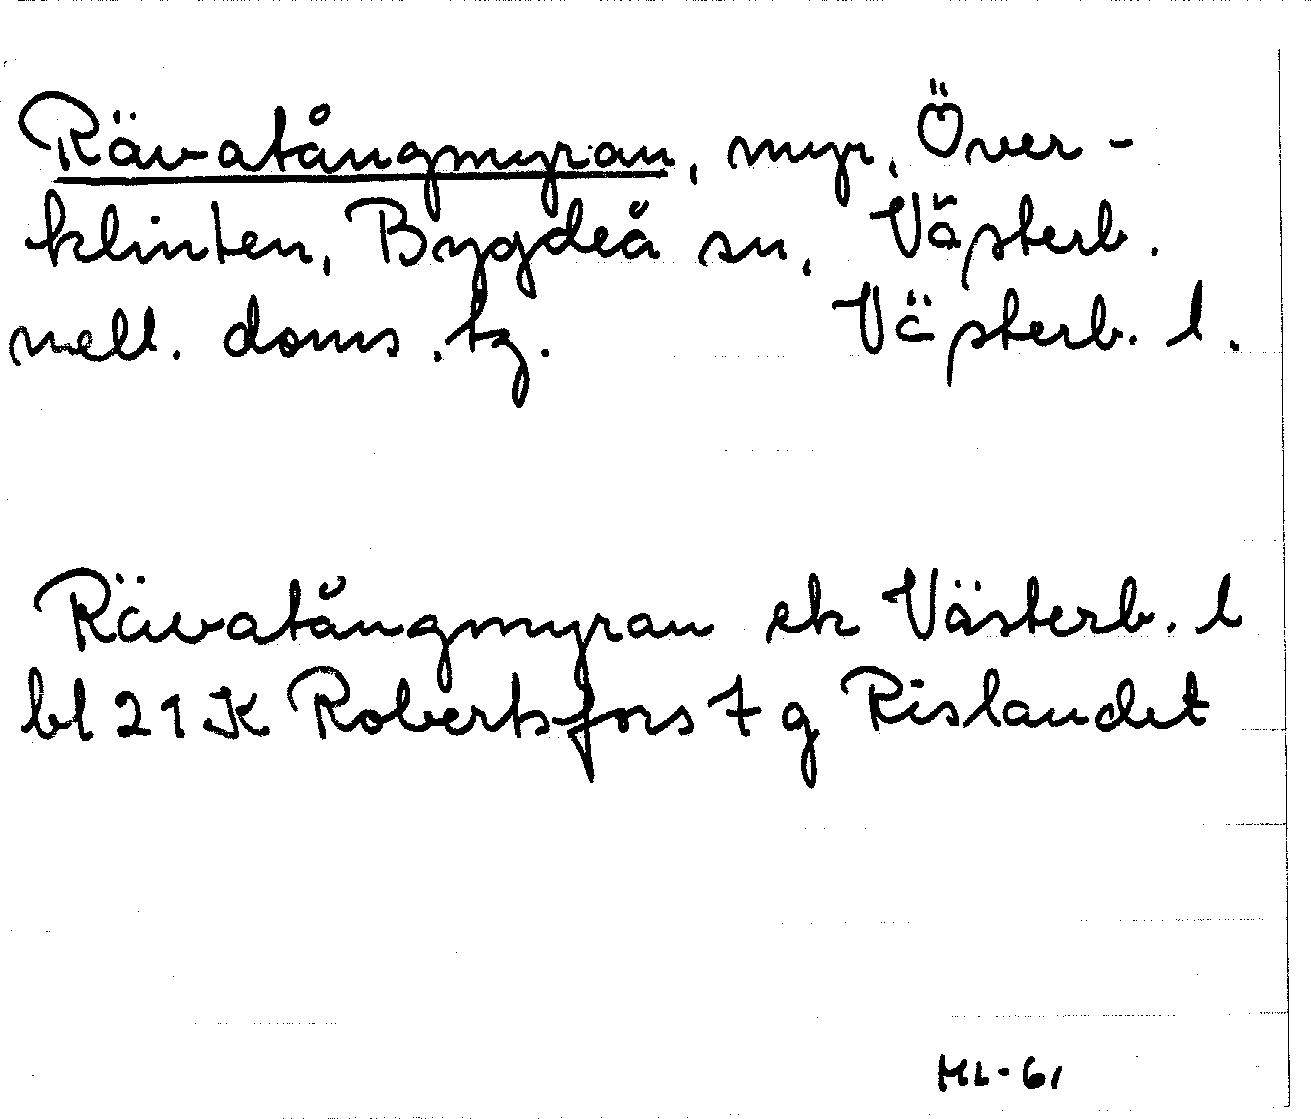 Rävatångmyran, myr, Över-
klinten, Bygdeå sn, Västerb.
mell. doms. tg. Västerb. l.
Rävatångmyran ek Västerb. l
bl 21 K Robertsfors 7 g Rislandet
ML-61